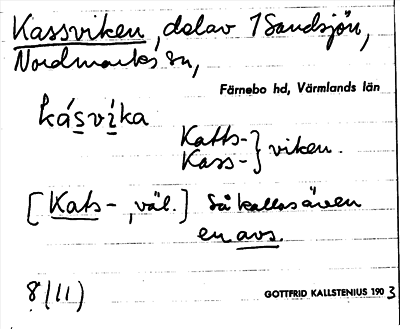 Kassviken, del av 1 Sandsjön,
Nordmarks sn,
Färnebo hd, Värmlands län
kásvíka
Katts-
Kass- } viken.
[Kats-, väl.] Så kallas även
en avs.
8 (11)
GOTTFRID KALLSTENIUS 1903